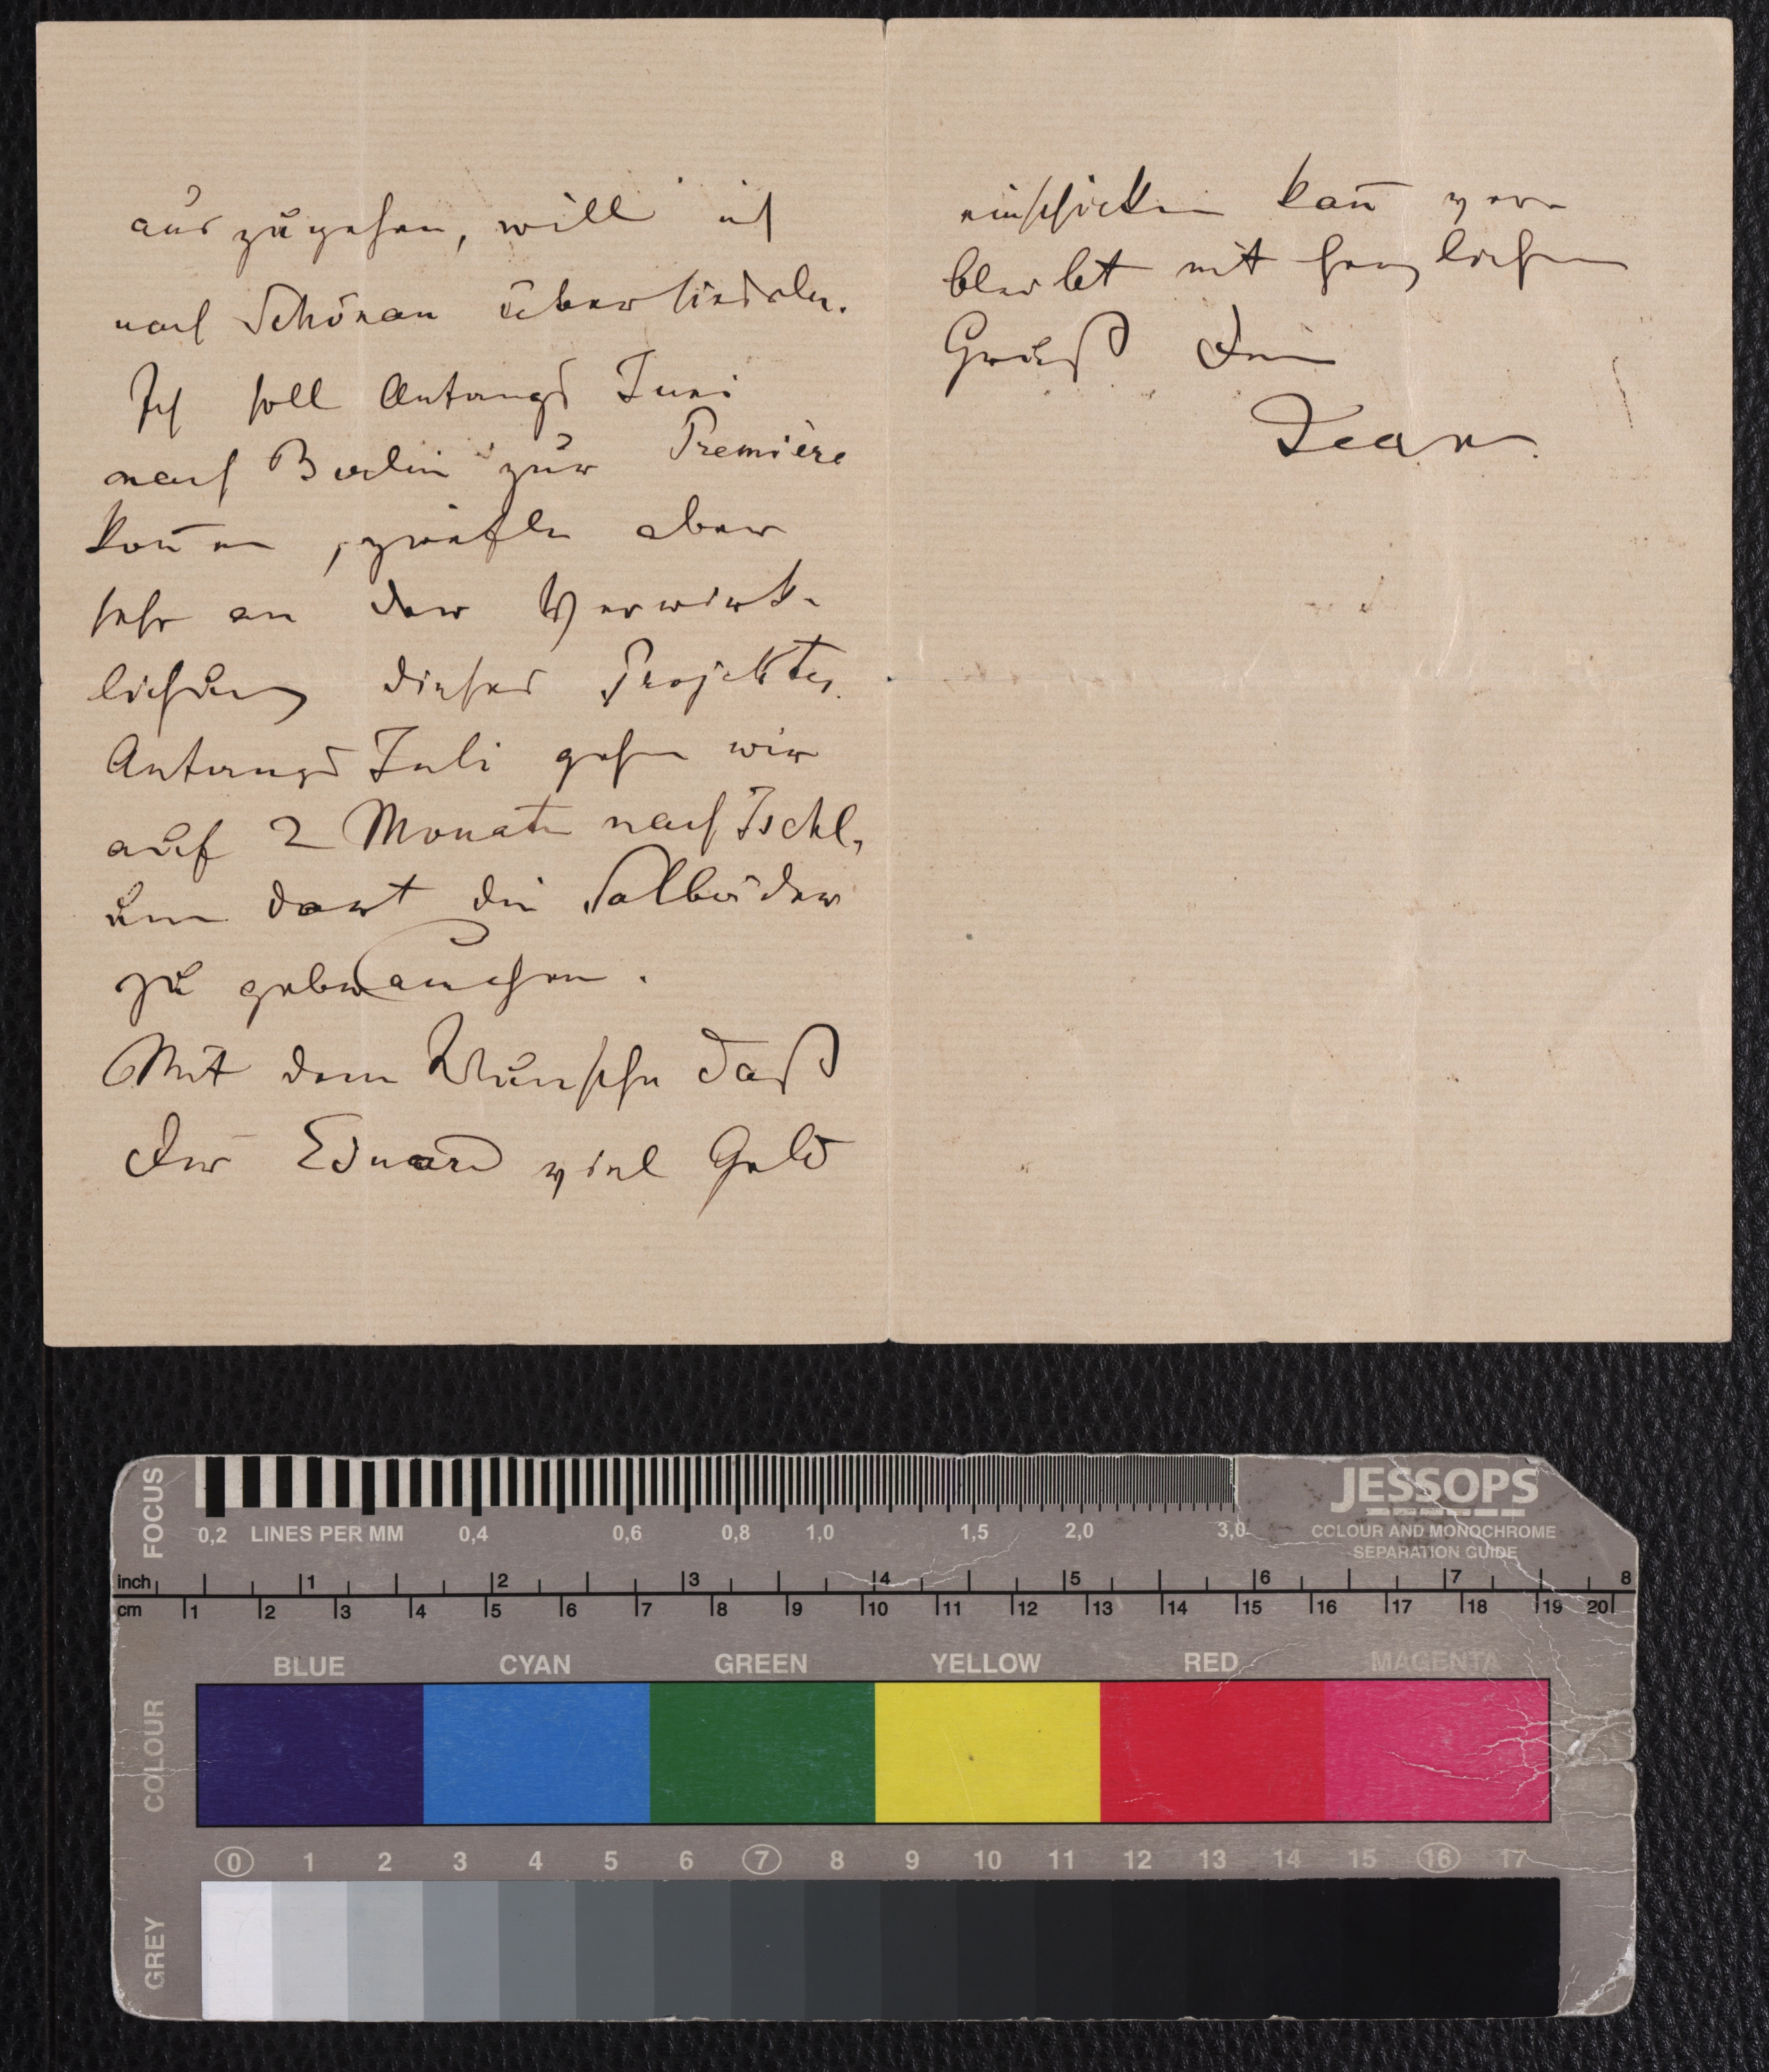 auszugehen, will ich
nach Schönau übersiedeln.
Ich soll Anfangs Juni
nach Berlin zur Première
kom̄en, zweifle aber
sehr an der Verwirk-
lichung dieses Projektes.
Anfangs Juli gehen wir
auf 2 Monate nach Ischl,
um dort die Solbäder
zu gebrauchen.
Mit dem Wunsche daß
der Eduard viel Geld
einschicken kan̄ ver-
bleibt mit herzlichem
Gruß Dein
Jean.
FOCUS
0,2 LINES PER MM 0,4 0,6 0,8 1,0 1,5 2,0 3,0
JESSOPS
COLOUR AND MONOCHROME
SEPARATION GUIDE
inch 1 2 3 4 5 6 7 8
cm 1 2 3 4 5 6 7 8 9 10 11 12 13 14 15 16 17 18 19 20
BLUE CYAN GREEN YELLOW RED MAGENTA
COLOUR
0 1 2 3 4 5 6 7 8 9 10 11 12 13 14 15 16 17
GREY